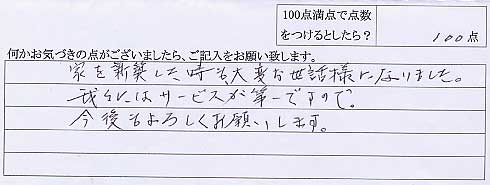 100点満点で点数
をつけるとしたら？ 100点
何かお気づきの点がございましたら、ご記入をお願い致します。
家を新築した時も、大変お世話様になりました。
我々にはサービスが第一ですので。
今後もよろしくお願いします。